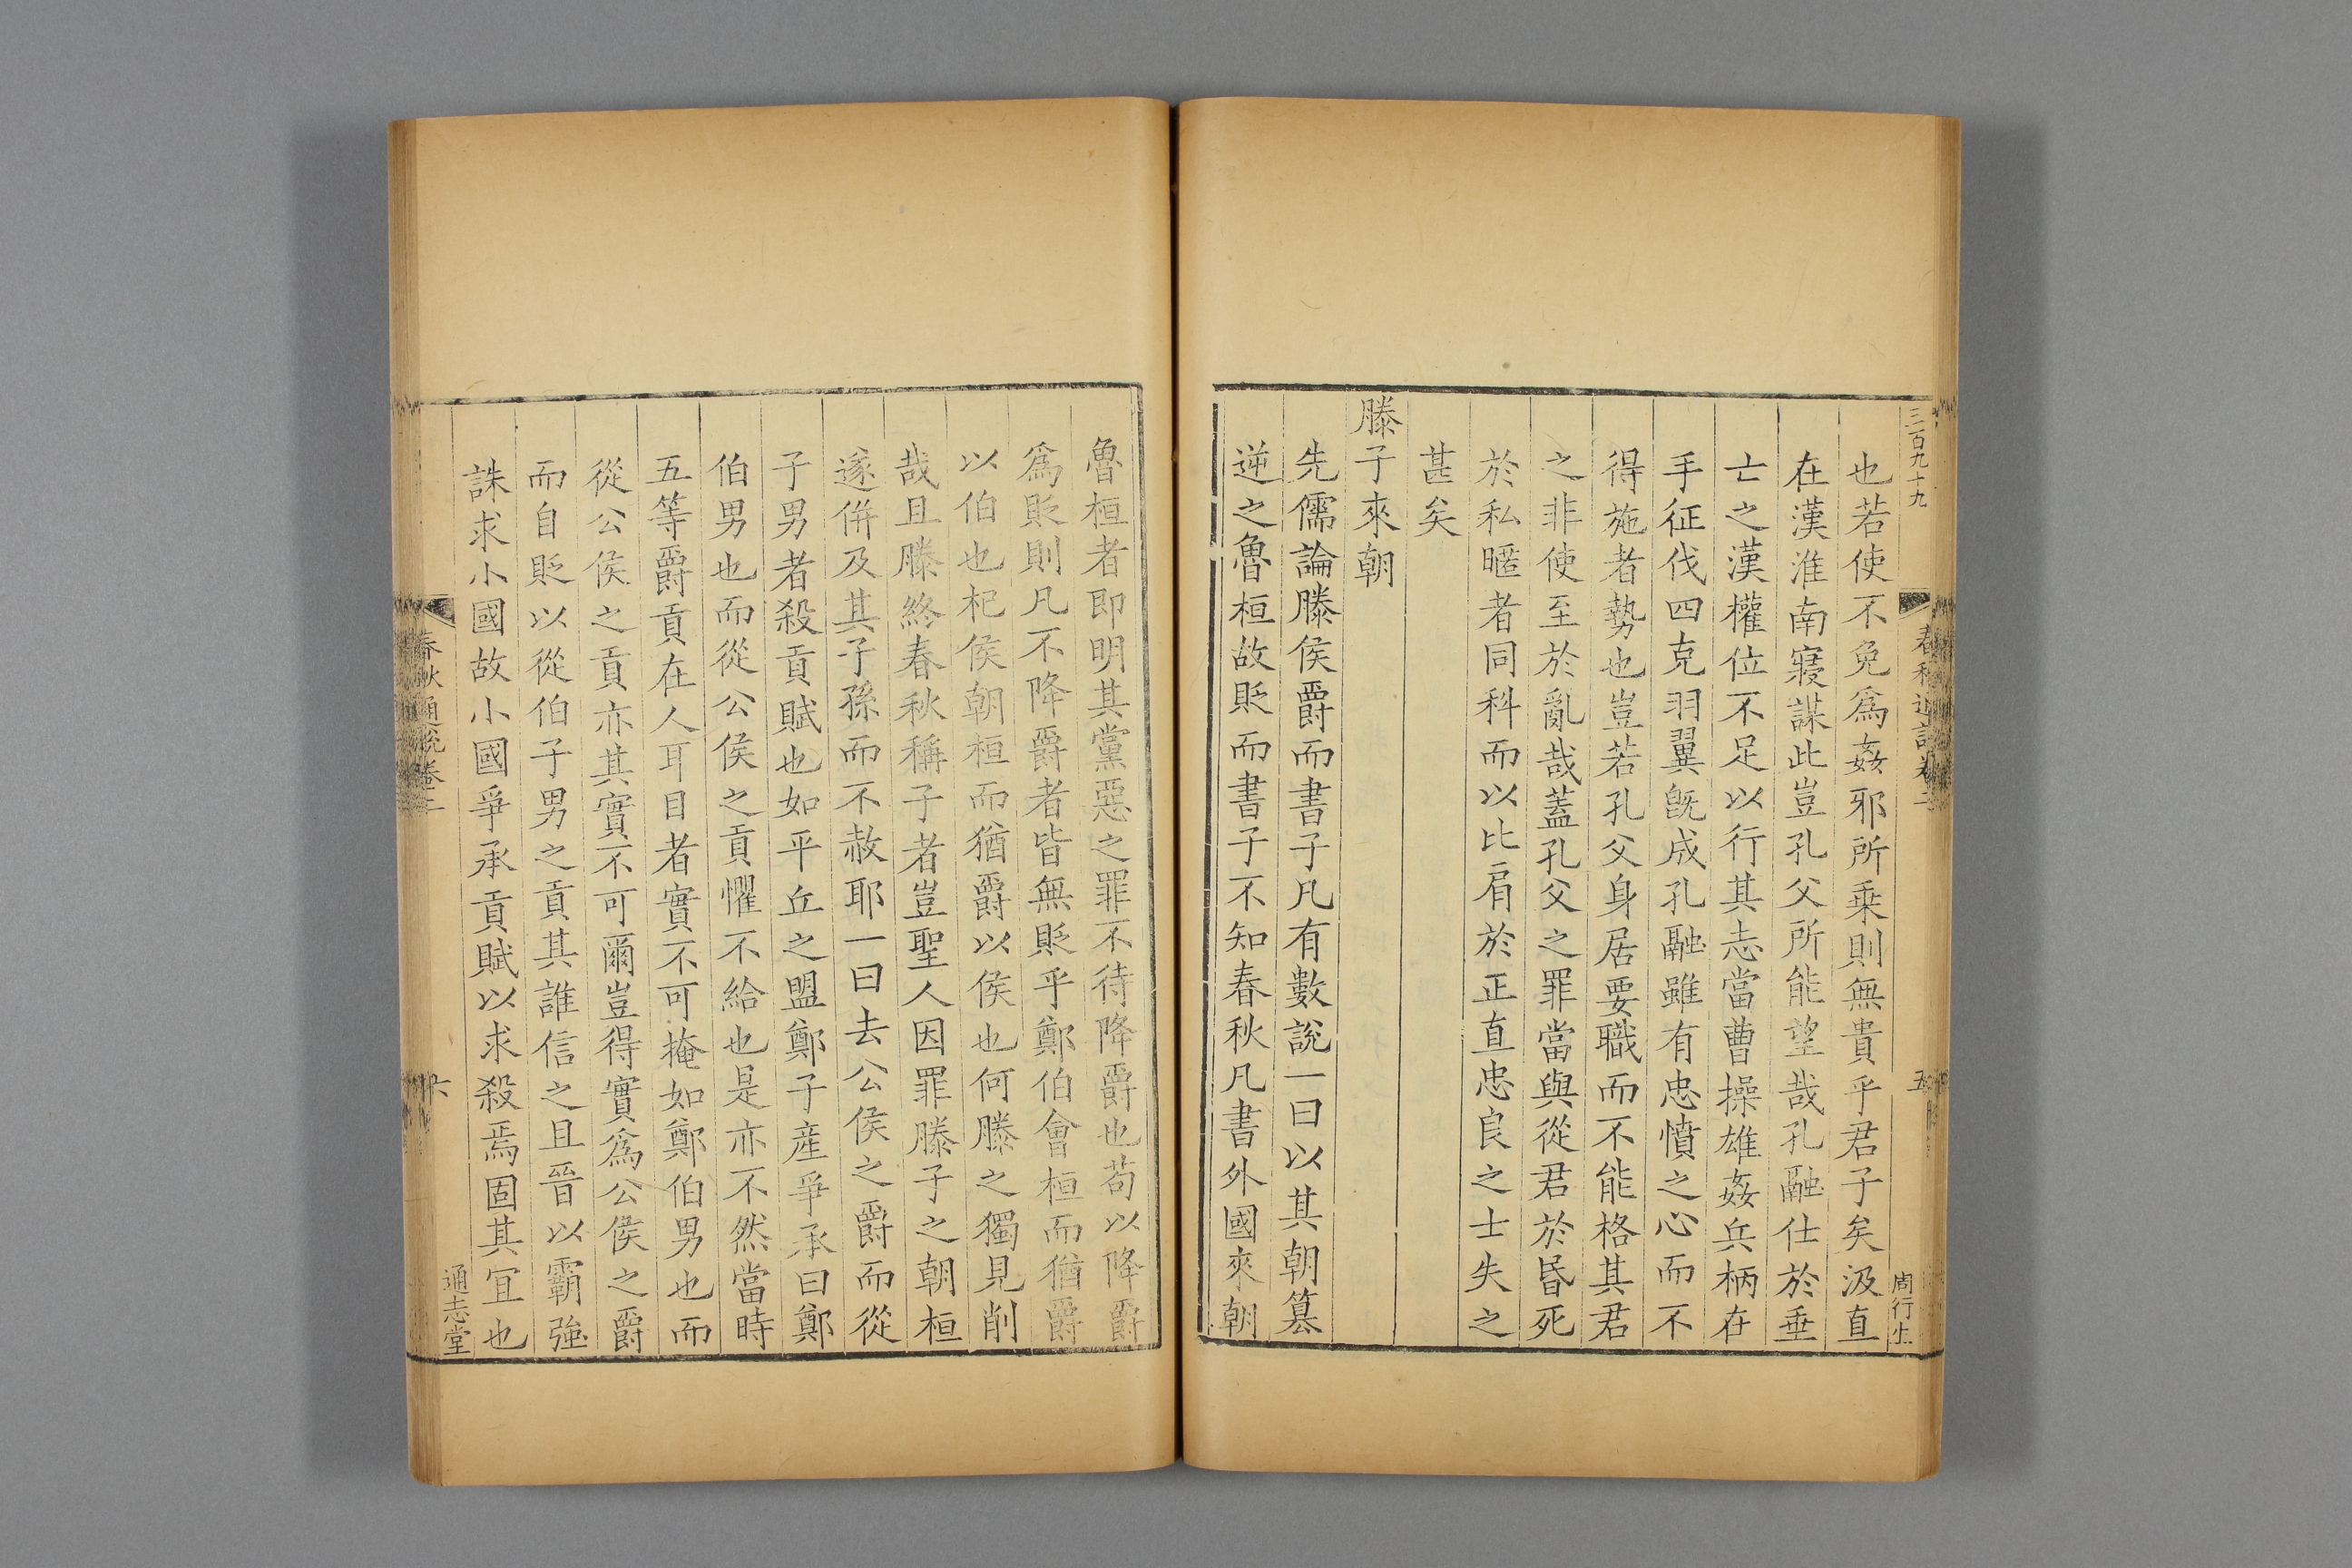 三百九十九
春秋通說卷二
五
周行生
也若使不免爲姦邪所乗則無貴乎君子矣汲直
在漢淮南寢謀此豈孔父所能望哉孔融仕於垂
亡之漢權位不足以行其志當曹操雄姦兵柄在
手征伐四克羽翼旣成孔融雖有忠憤之心而不
得施者勢也豈若孔父身居要職而不能格其君
之非使至於亂哉蓋孔父之罪當與從君於昬死
於私暱者同科而以比肩於正直忠良之士失之
甚矣
滕子來朝
先儒論滕侯爵而書子凡有數說一曰以其朝簒
逆之魯桓故貶而書子不知春秋凡書外國來朝
魯桓者即明其黨惡之罪不待降爵也苟以降爵
爲貶則凡不降爵者皆無貶乎鄭伯會桓而猶爵
以伯也杞侯朝桓而猶爵以侯也何滕之獨見削
哉且滕終春秋稱子者豈聖人因罪滕子之朝桓
遂併及其子孫而不赦耶一曰去公侯之爵而從
子男者殺貢賦也如平丘之盟鄭子產爭承曰鄭
伯男也而從公侯之貢懼不給也是亦不然當時
五等爵貢在人耳目者實不可掩如鄭伯男也而
從公侯之貢亦其實不可爾豈得實爲公侯之爵
而自貶以從伯子男之貢其誰信之且晉以霸強
誅求小國故小國爭承貢賦以求殺焉固其宜也
春秋通說卷二
六
通志堂